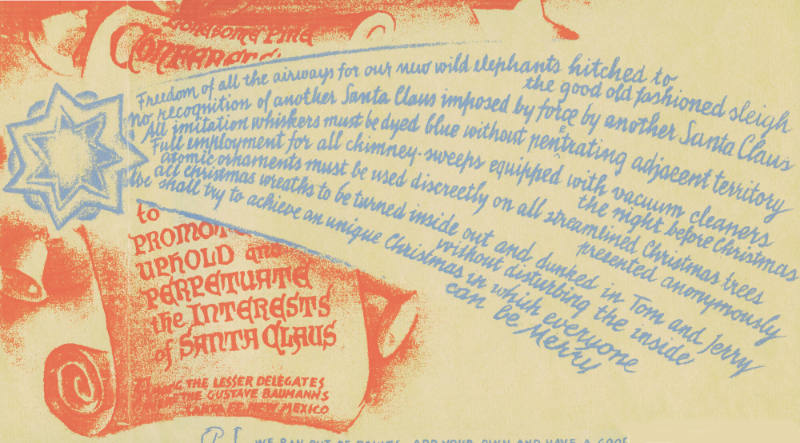 Lonesome Pine
Freedom of all the airways for our new wild elephants hitched to
the good old fashioned sleigh
no recognition of another Santa Claus imposed by force by another Santa Claus
All imitation whiskers must be dyed blue without penetrating adjacent territory
Full employment for all chimney-sweeps equipped with vacuum cleaners
the night before Christmas
atomic ornaments must be used discreetly on all streamlined Christmas trees
presented anonymously
all christmas wreaths to be turned inside out and dunked in Tom and Jerry
without disturbing the inside
We shall try to achieve an unique Christmas in which everyone
can be Merry
to
PROMOT
UPHOLD and
PERPETUATE
the INTERESTS
of SANTA CLAUS
THE LESSER DELEGATES
THE GUSTAVE BAUMANNS
SANTA FE NEW MEXICO
WE RAN OUT OF POINTS ADD YOUR OWN AND HAVE A GOOD